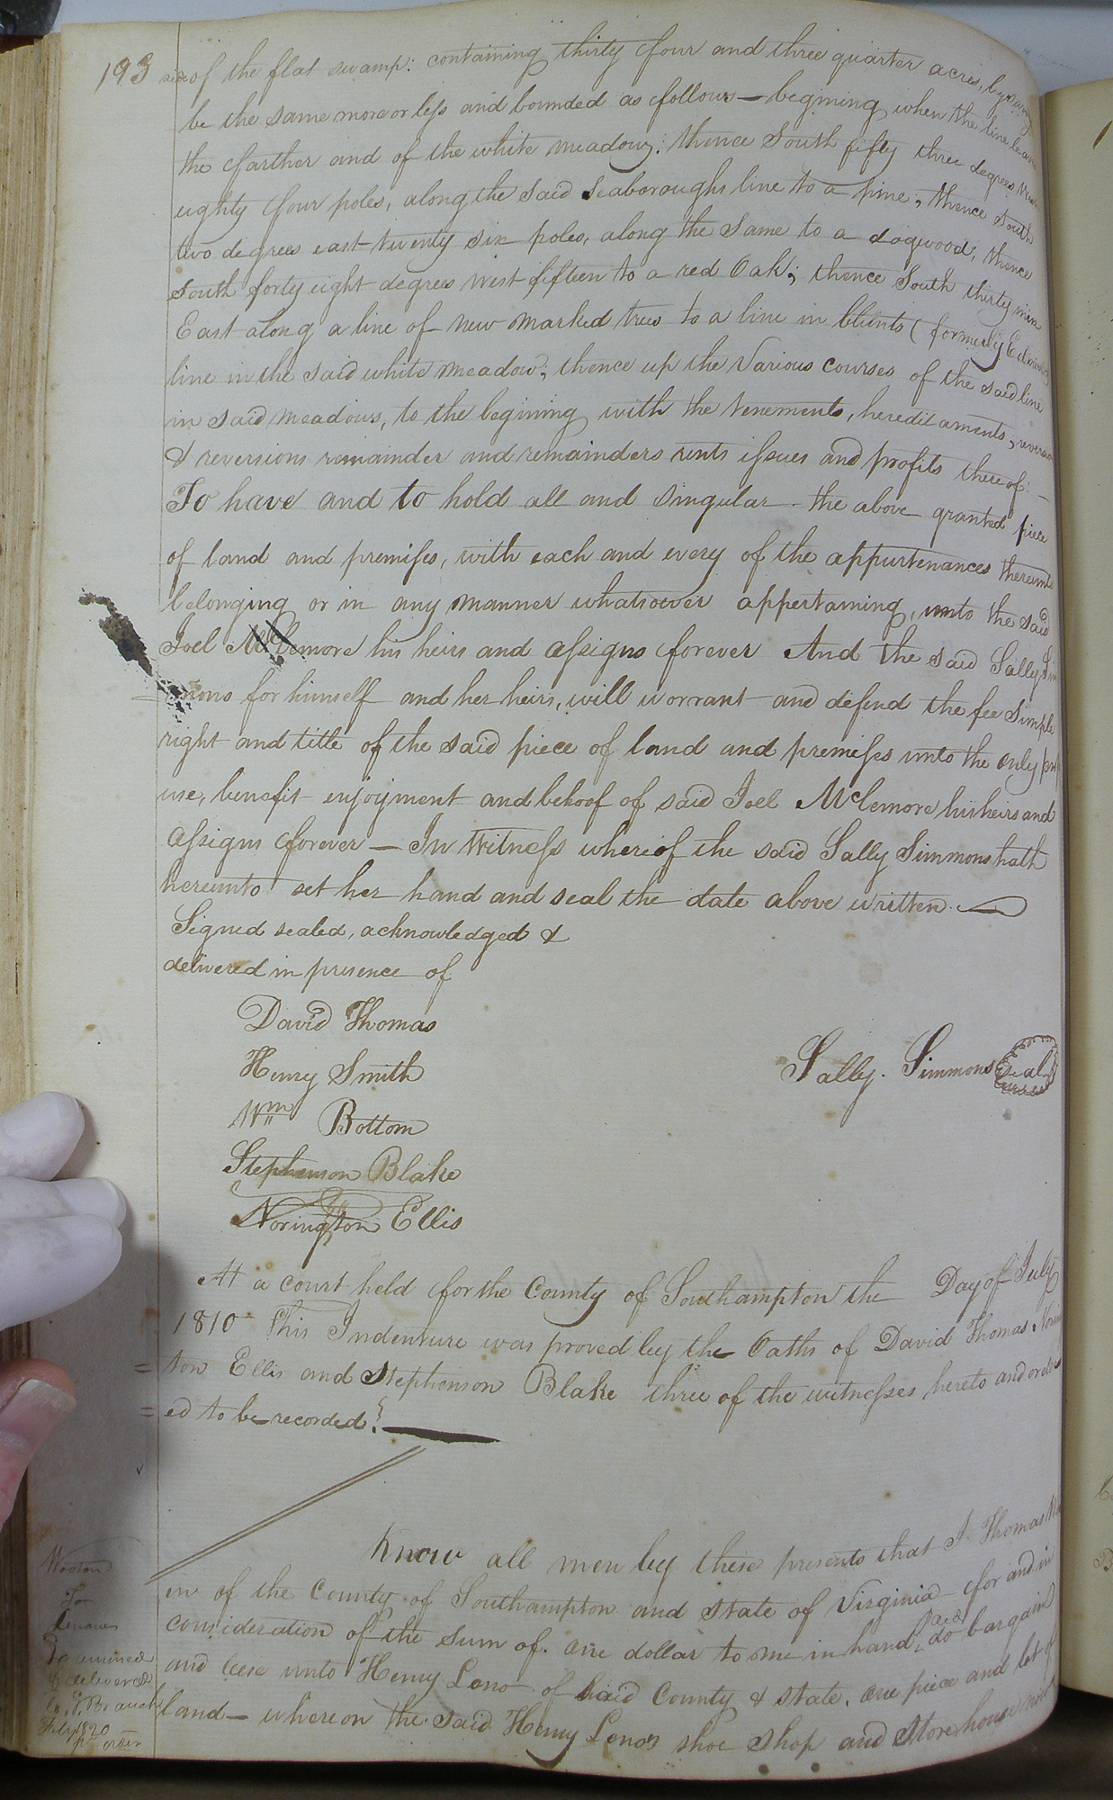 193 side of the flat swamp: containing thirty four and three quarter acres, by
be the same more or less and bounded as follows — begining when the line
the farther and of the white meadow: thence South fifty three degrees
eighty four poles, along the said Seaboroughs line to a pine; thence South
two degrees east twenty six poles, along the same to a dogwood; thence
South forty eight degrees west fifteen to a red Oak; thence South thirty nine
East along a line of new marked trees to a line in blunts (formerly
line in the said white meadow; thence up the Various courses of the said line
in said meadows, to the begining with the tenements, hereditaments,
& reversions remainder and remainders rents issues and profits thereof —
To have and to hold all and singular the above granted piece
of land and premisses, with each and every of the appurtenances thereunto
belonging or in any manner whatsoever appertaining, unto the said
Joel McLemore his heirs and assigns forever And the said Sally Sim
= mons for himself and her heirs, will worrant and defend the fee Simple
right and title of the said piece of land and premisses unto the only
use, benefit enjoyment and behoof of said Joel McLemore his heirs and
assigns forever — In Witness whereof the said Sally Simmons hath
hereunto set her hand and seal the date above written.
Signed sealed, acknowledged &
delivered in presence of
David Thomas
Henry Smith
Sally. Simmons Seal
Wm Bottom
Stephenson Blake
Norington Ellis
At a court held for the County of Southampton the Day of July
1810 This Indenture was proved by the Oaths of David Thomas Norin
= ton Ellis and Stephenson Blake three of the witnesses hereto and order
= ed to be recorded
Know all men by these presents that I Thomas
en of the County of Southampton and State of Virginia for and in
consideration of the sum of. one dollar to me in hand, paid do bargain
and lese unto Henry Leno of said County & state. one piece and lot of
land — whereon the said Henry Lenos shoe shop and Store house now
To
Examined
& delivered
Branch
1820
pr order